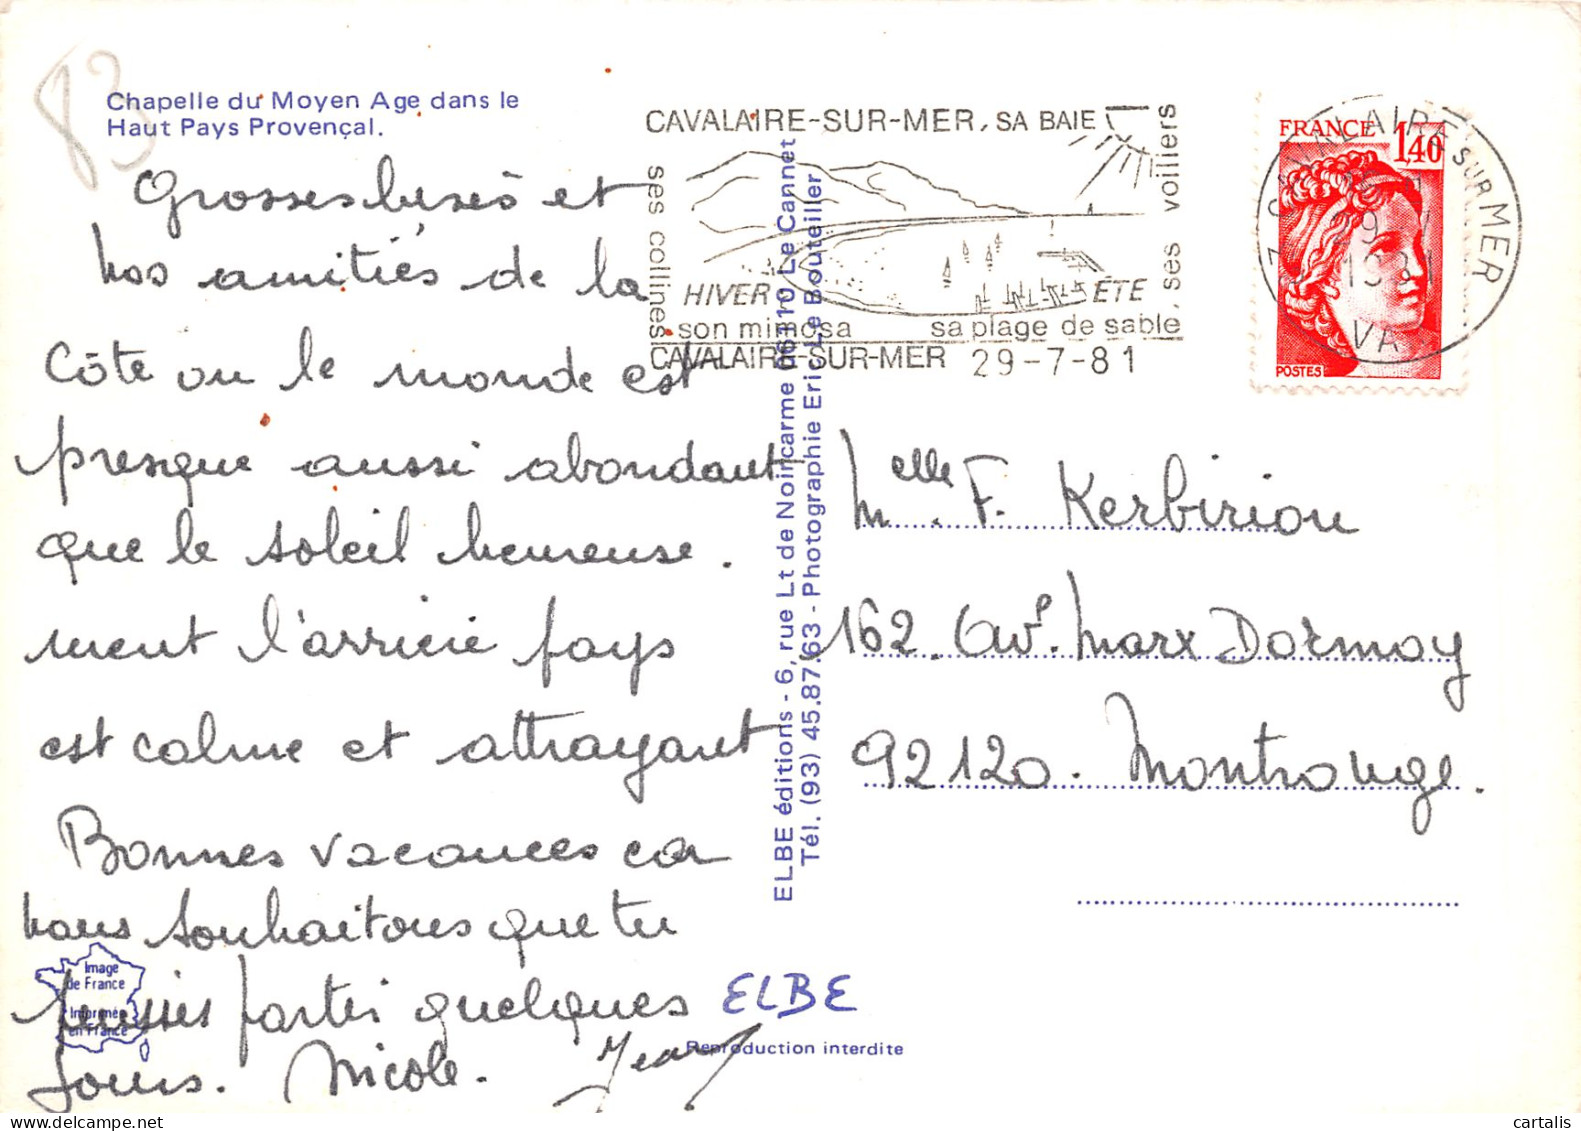 83
Chapelle du Moyen Age dans le
Haut Pays Provençal.
Grosses bises et
nos amitiés de la
Côte ou le monde est
presque aussi abondant
que le soleil heureuse.
ment l'arrière pays
est calme et attrayant
Bonnes vacances car
nous souhaitons que tu
puisses partir quelques
jours. Nicole. Jean
CAVALAIRE-SUR-MER, SA BAIE
ses collines
, ses voiliers
HIVER
son mimosa
ÉTÉ
sa plage de sable
CAVALAIRE-SUR-MER 29-7-81
FRANCE 1,40
POSTES
CAVALAIRE SUR MER
29
1981
VAR
ELBE éditions - 6, rue Lt de Noircarme 06110 Le Cannet
Tél. (93) 45.87.63 - Photographie Eric Le Bouteiller
Melle. F. Kerbiriou
162. Av. Marx Dormoy
92120. Montrouge.
Image
de France
Imprimée
en France
ELBE
Reproduction interdite
cartalis